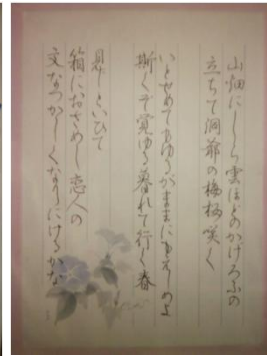 山畑にしら雲ほどのかげろふの
立ちて洞爺の梅桜咲く
いとせめてもゆるがままにもえしめよ
斯くぞ覚ゆる暮れて行く春
といひて
箱におさめし恋人の
文なつかしくなりにけるかな